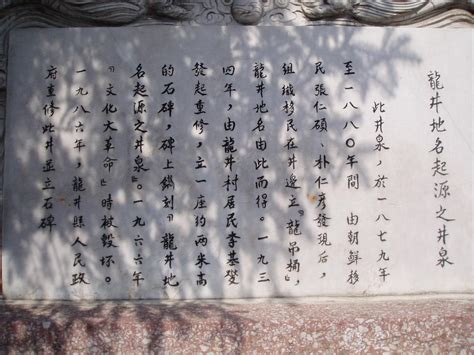 龍井地名起源之井泉
此井泉，於一八七九年
至一八八〇年間 由朝鮮移
民張仁碩、朴仁彦發現后，
組織移民在井邊立『龍吊桶』，
龍井地名由此而得。一九三
四年，由龍井村居民李基燮
發起重修，立一座約两米高
的石碑，碑上鐫刻『龍井地
名起源之井泉』。一九六六年
『文化大革命』時被毁坏。
一九八六年，龍井縣人民政
府重修此井並立石碑